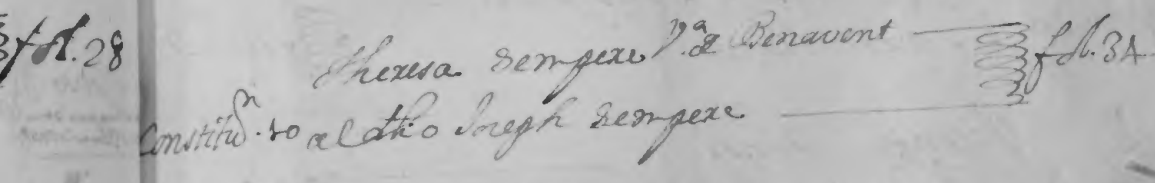 fol. 28
Theresa Sempere V.ª de Benavent fol. 34
Constitu.n al dho Joseph Sempere